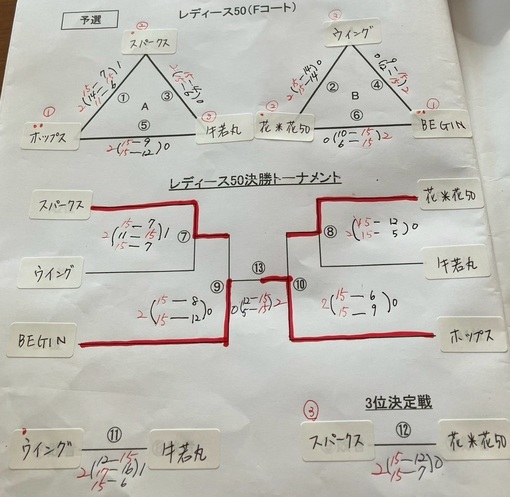 予選
レディース50(Fコート)
②
スパークス
②
ウイング
①
A
③
②
B
④
①
ホップス
⑤
2(15-9 15-12)0
③
牛若丸
③
花米花50
⑥
0(10-15 6-15)2
①
BEGIN
レディース50決勝トーナメント
スパークス
花米花50
2(15-7 11-15 15-7)1
⑦
⑧
2(15-12 15-5)0
ウイング
牛若丸
⑨
⑬
⑩
2(15-8 15-12)0
0(12-15 5-15)2
2(15-6 15-9)0
BEGIN
ホップス
3位決定戦
③
⑪
⑫
ウイング
牛若丸
スパークス
花米花50
2(12-15 17-16 15-6)1
2(15-12 15-7)0